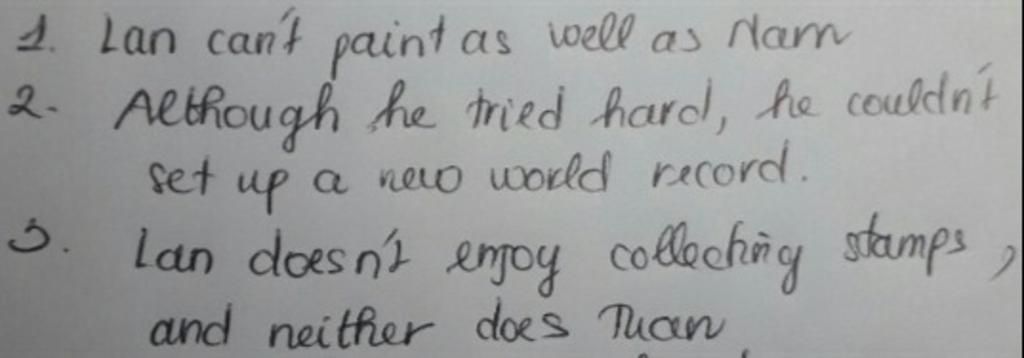 1. Lan can't paint as well as Nam
2. Although he tried hard, he couldn't
set up a new world record.
3. Lan doesn't enjoy collecting stamps,
and neither does Tuan